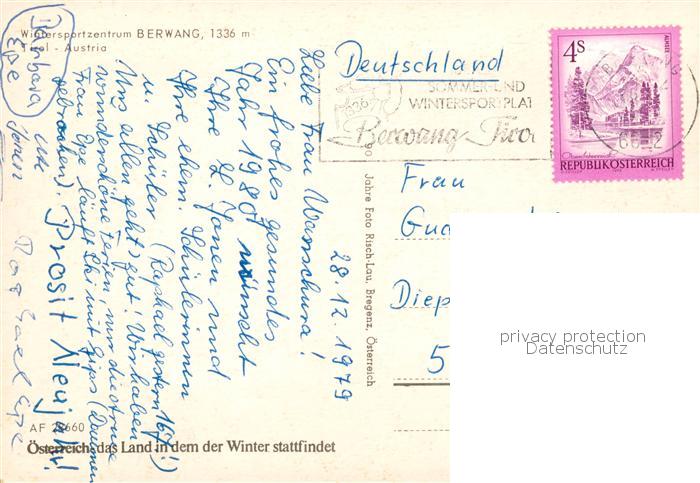 Wintersportzentrum BERWANG, 1336 m
Tirol - Austria
Deutschland
SOMMER- UND
WINTERSPORTPLATZ
Berwang Tirol
6622
4S
REPUBLIK ÖSTERREICH
Frau
Diep
5
28.12.1979
Liebe Frau Warschura!
Ein frohes gesundes
Jahr 1980 wünscht
Ihre L. Jonen und
Ihre ehem. Schülerinnen
u. Schüler (Raphael gestern 16J!)
Uns allen geht's gut! Wir haben
wunderschöne Ferien! nur die otrue
Frau Epe läuft Ski mit Gips (Daumen
gebrochen). Prosit Neujahr!
Ute
Jonen
Barbara
Epe
Raphael Epe
90 Jahre Foto Risch-Lau, Bregenz, Österreich
AF 26660
Österreich, das Land in dem der Winter stattfindet
privacy protection
Datenschutz